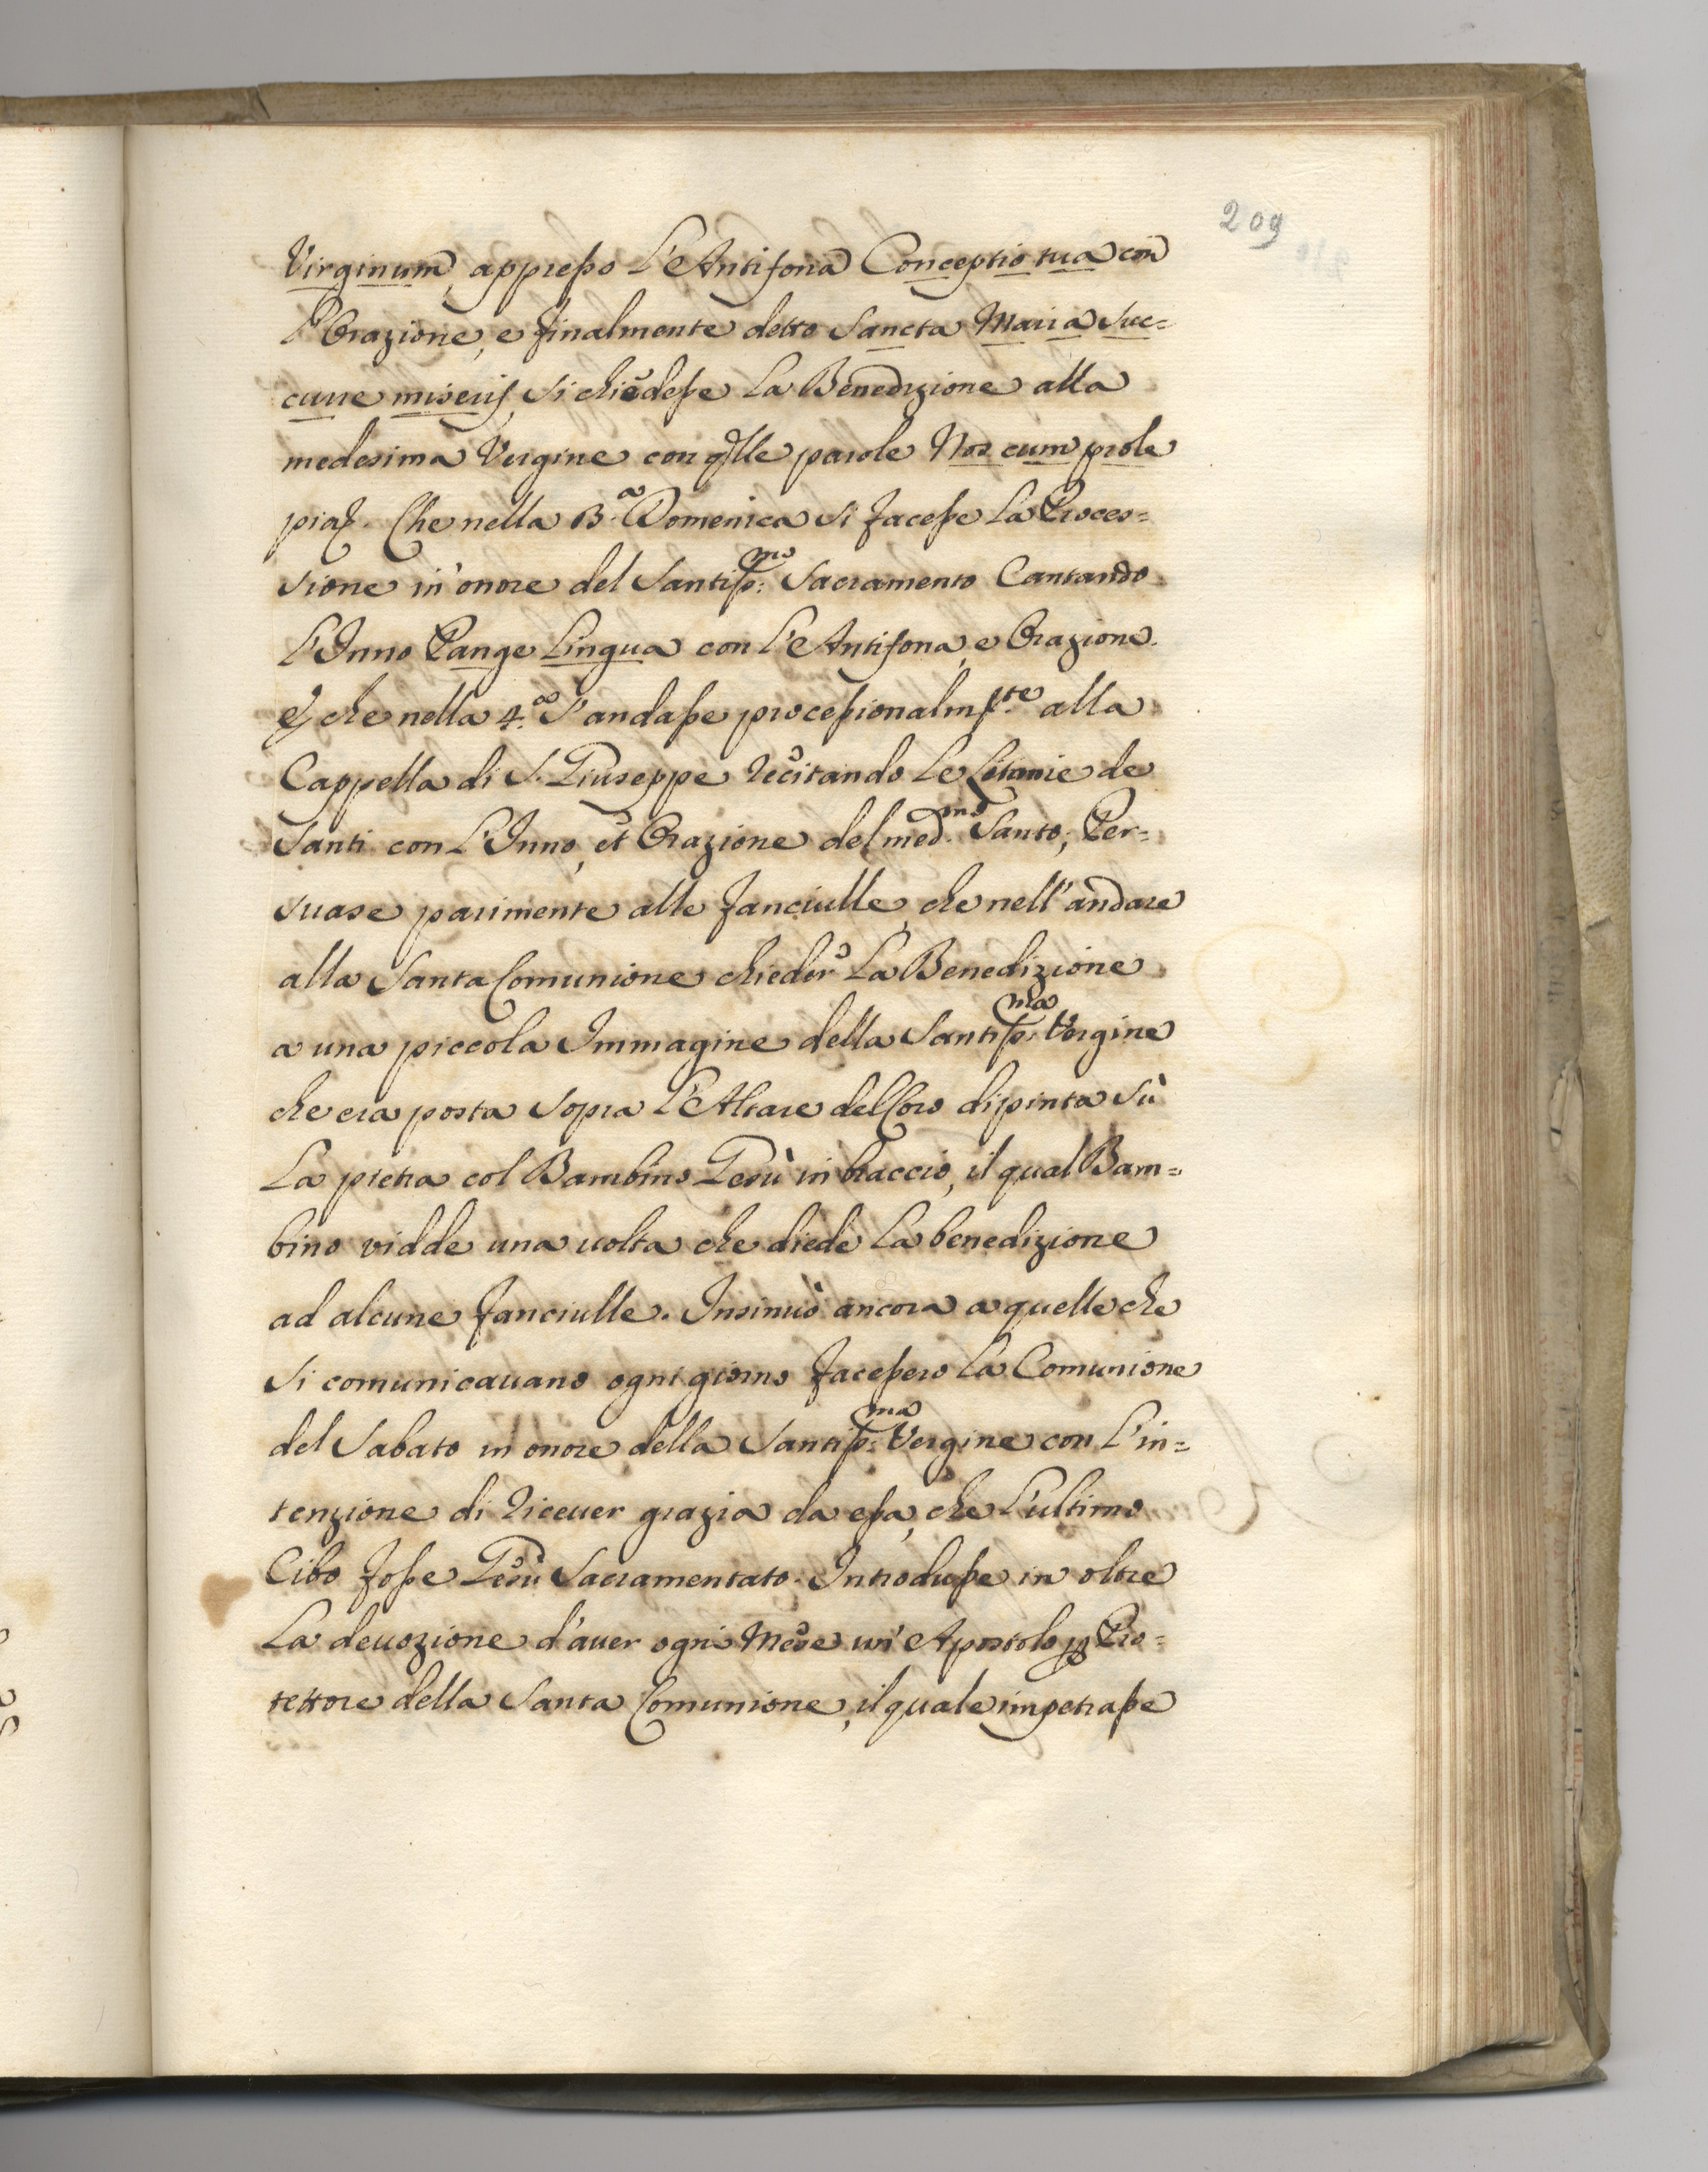 209
Virginum, appresso L'Antifona Conceptio tua con
l'Orazione, e finalmente detto Sancta Maria Suc=
curre miseris, si chiedesse La Benedizione alla
medesima Vergine con qlle parole Nos cum prole
pia. Che nella 3.a Domenica si facesse La Proces=
sione in onore del Santiss:mo Sacramento Cantando
L'Inno Pange Lingua con L'Antifona, e Orazione.
E che nella 4.a s'andasse processionalmte alla
Cappella di S. Giuseppe recitando Le Litanie de
Santi con L'Inno, et Orazione del med.mo Santo; Per=
suase parimente alle fanciulle, che nell'andare
alla Santa Comunione chieder La Benedizione
a una piccola Immagine della Santiss:ma Vergine
che era posta sopra L'Altare del Coro dipinta sù
La pietra col Bambino Gesù in braccio, il qual Bam=
bino vidde una uolta che diede La benedizione
ad alcune fanciulle. Insinuò ancora a quelle che
si comunicauano ogni giorno facessero La Comunione
del Sabato in onore della Santiss:ma Vergine con L'in=
tenzione di riceuer grazia da essa, che L'ultimo
Cibo fosse Gesù Sacramentato. Introdusse in oltre
La deuozione d'auer ogni Mese un'Apostolo p Pro=
tettore della Santa Comunione, il quale impetrasse